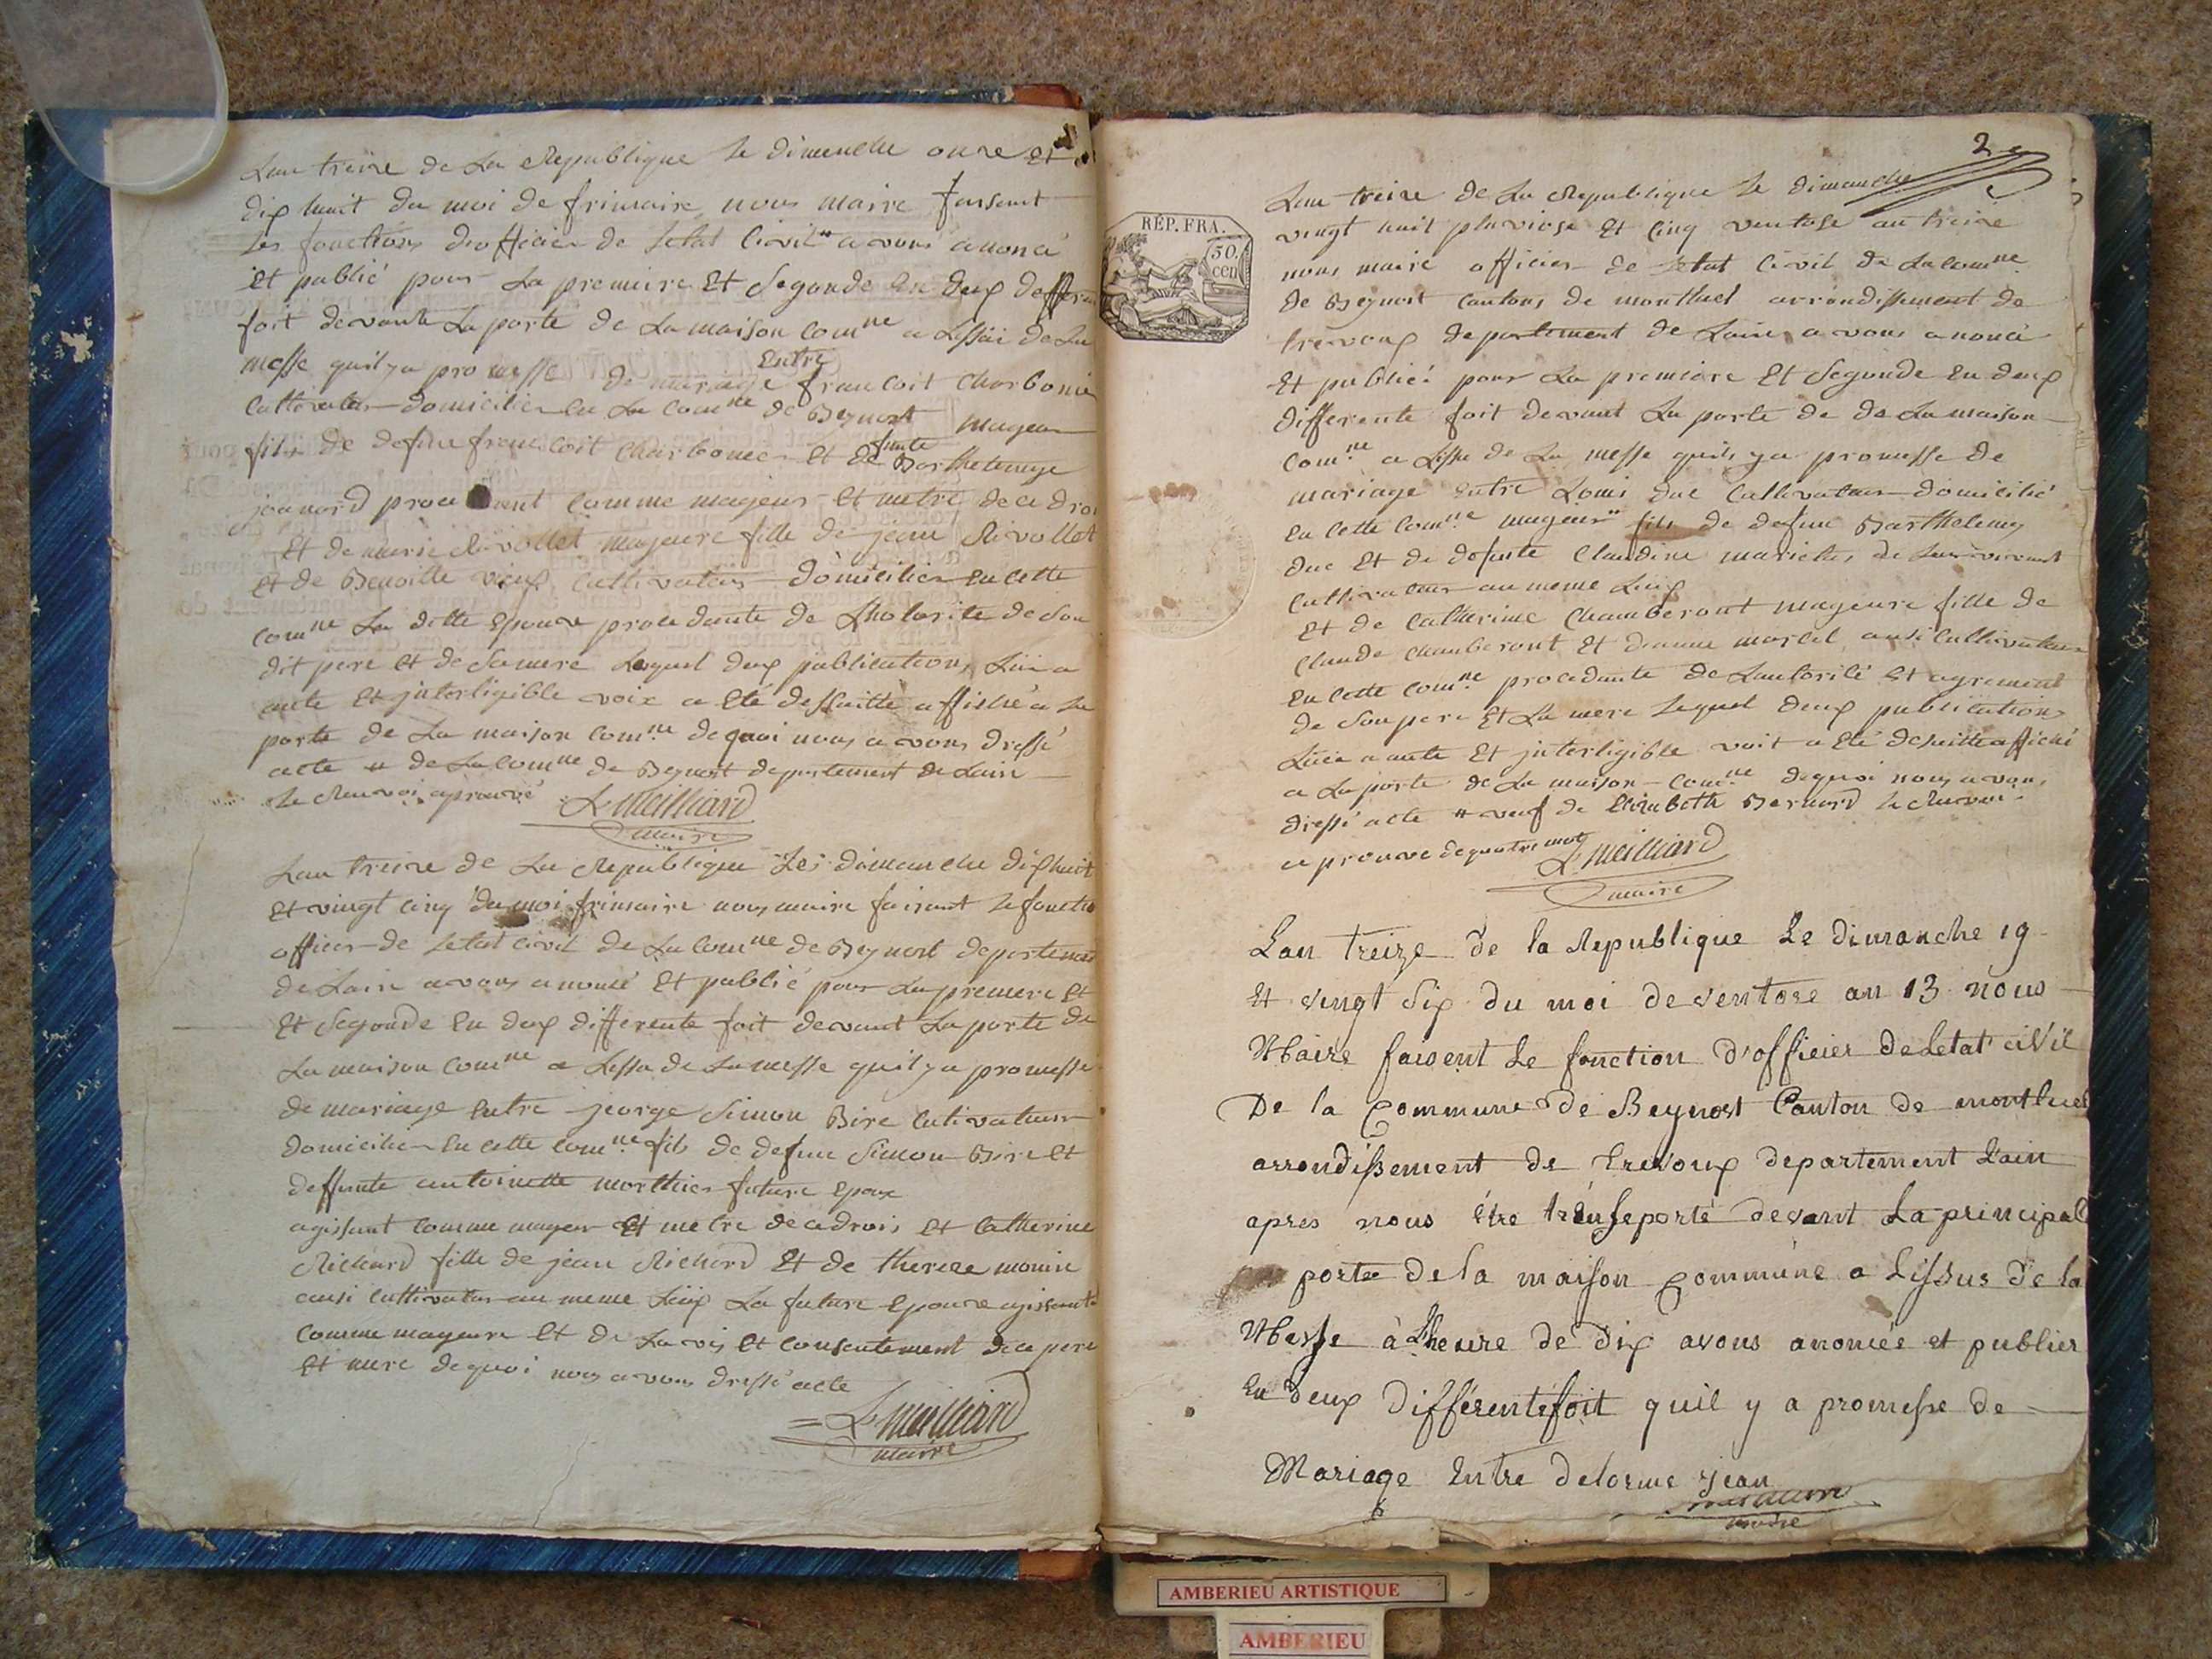 Lan treize de La Republique le dimenche onze Et
dix huit du moi de frimaire nous maire faisent
les fonctions dofficier de letat Civil a vons anoncé
Et publié pour La premiere Et Segonde En deux deffere
foit devante La porte de La maison comne a Lissûe de La
messe quil ya promesse de mariage Entre francoit Charbonie
Cultivateur domicilier en La comne de Beynost mageur
fils de defun francoit Charbonier Et de funte Barthelemye
joanard procedent Comme mageur Et metre de ce droi
Et de marie Rivollet mageure fille de jean Rivollet
Et de Benoitte vieux Cultivateur domicilier en Cette
Comne La ditte Epouze procedante de Lhotorite de Son
dit pere Et de Samere Lequel deux publications Luë a
aute Et jnterligible voix a Eté dessuitte affiché a La
porte de La maison comne dequoi nous a vons dressé
acte de La Comne de Beynost departement de Lain
le Renvoi aprouvé Lmeilliard
maire
Lan treize de La Republique Les dimanche dix huit
Et vingt cinq du moi frimaire nous maire faisant le fonctio
officier de Letat Civil de La Comne de Beynost departemen
de Lain a vons anoncé Et publié pour La premiere Et
Et Segonde En deux differente foit devant La porte de
La maison Comne a Lissu de La messe quil ya promesse
de mariage Entre jeorge Simon Bire Cultivateur
domicilier En cette comne fils de defun Simon Bire Et
deffunte antoinette morthier future Epoux
agissant Comme mageur Et metre de ce drois Et Catherine
Richard fille de jean Richard Et de thereze monin
ausi Cultivateur au meme Lieux La future Epouze agissante
Comme mageure Et de La vis Et Consentement de ce pere
Et mere dequoi nous a vons dressé acte
Lmeilliard
maire
2
Lan treize de La Republique le dimanche
vingt huit pluviose Et Cinq ventose an treize
RÉP. FRA.
50
cen
nous maire officier de Letat Civil de La Comne
de Beynost Cantons de montluel arrondissement de
trevoux departement de Lain a vons anoncé
Et publiéé pour La premiere Et Segonde En deux
differente foit devant La porte de de La maison
Comne a Lissue de La messe quil ya promesse de
mariage Entre Louis duc Cultivateur domicilié
En Cette Comne mageur fils de defun Barthelemy
duc Et de defunte Claudine de leur vivant
Cultivateur au meme Lieux
Et de Catherine Chamberont mageure fille de
Claude Chamberont Et marcel ausi Cultivateur
En Cette Comne procedante de Lautorité Et agrement
de Son pere Et La mere Lequel deux publications
Luëe a aute Et jnterligible voit a Eté desuitte affiché
a La porte de La maison Comne dequoi nous a vons
dressé acte veuf de Elizabeth Bernard le Renvoi
a prouvé de quatre mot Lmeilliard
maire
Lan treize de la Republique Le dimanche 19
Et vingt Six du moi de ventose an 13 nous
Maire faisent Le fonction d'officier de Letat civil
De la Commune de Beynost Canton de montluel
arrondissement de trevoux departement Lain
apres nous être transeporté devant La principale
porte de la maison Commune a Lissus de la
Messe à Lheure de dix avons anoncée et publier
En deux différente foit quil y a promesse de
Mariage Entre delorme jean
maire
AMBERIEU ARTISTIQUE
AMBERIEU